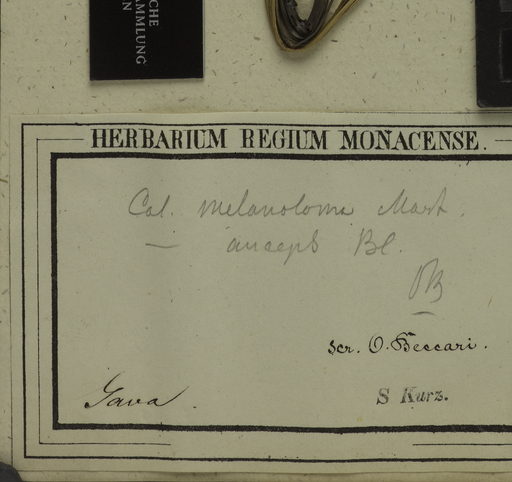 CHE
AMMLUNG
EN
HERBARIUM REGIUM MONACENSE.
Cal. melanoloma Mart.
— anceps Bl.
OB
scr. O. Beccari.
Java.
S Kurz.